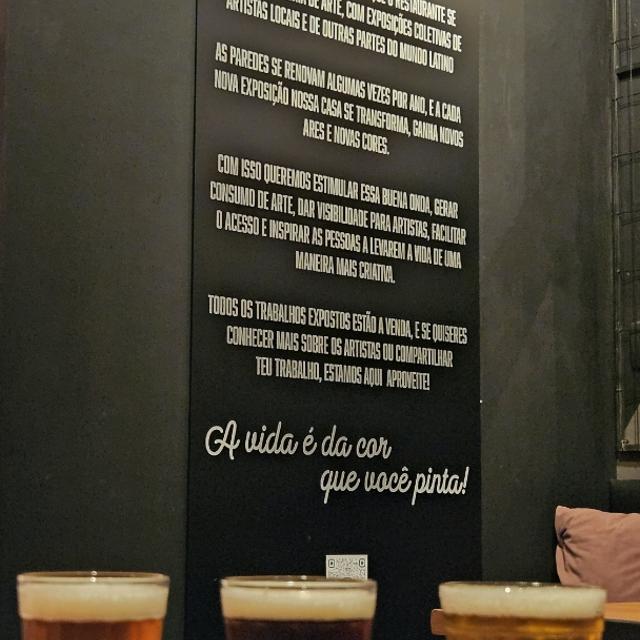 RESTAURANTE SE
DE ARTE, COM EXPOSIÇÕES COLETIVAS DE
ARTISTAS LOCAIS E DE OUTRAS PARTES DO MUNDO LATINO
AS PAREDES SE RENOVAM ALGUMAS VEZES POR ANO, E A CADA
NOVA EXPOSIÇÃO NOSSA CASA SE TRANSFORMA, GANHA NOVOS
ARES E NOVAS CORES.
COM ISSO QUEREMOS ESTIMULAR ESSA BUENA ONDA, GERAR
CONSUMO DE ARTE, DAR VISIBILIDADE PARA ARTISTAS, FACILITAR
O ACESSO E INSPIRAR AS PESSOAS A LEVAREM A VIDA DE UMA
MANEIRA MAIS CRIATIVA.
TODOS OS TRABALHOS EXPOSTOS ESTÃO A VENDA, E SE QUISERES
CONHECER MAIS SOBRE OS ARTISTAS OU COMPARTILHAR
TEU TRABALHO, ESTAMOS AQUI APROVEITE!
A vida é da cor
que você pinta!